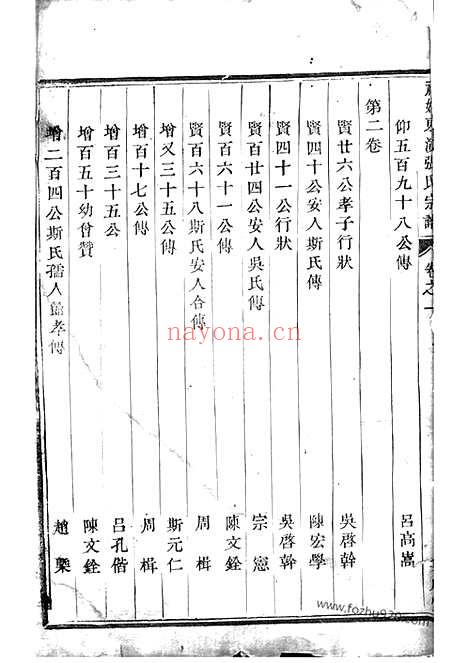 東演張氏宗譜 卷之一
仰五百九十八公傳 呂高嵩
第二卷
賢廿六公孝子行狀 吳啓幹
賢四十公安人斯氏傳 陳宏學
賢四十一公行狀 吳啓幹
賢百廿四公安人吳氏傳 宗憲
賢百六十一公傳 陳文銓
賢百六十八斯氏安人合傳 周楫
增又三十五公傳 斯元仁
增百十七公傳 周楫
增百三十五公 呂孔偕
增百五十幼曾贊 陳文銓
增二百四公斯氏孺人節孝傳 趙槼
nayona.cn
www.fozhu920.com